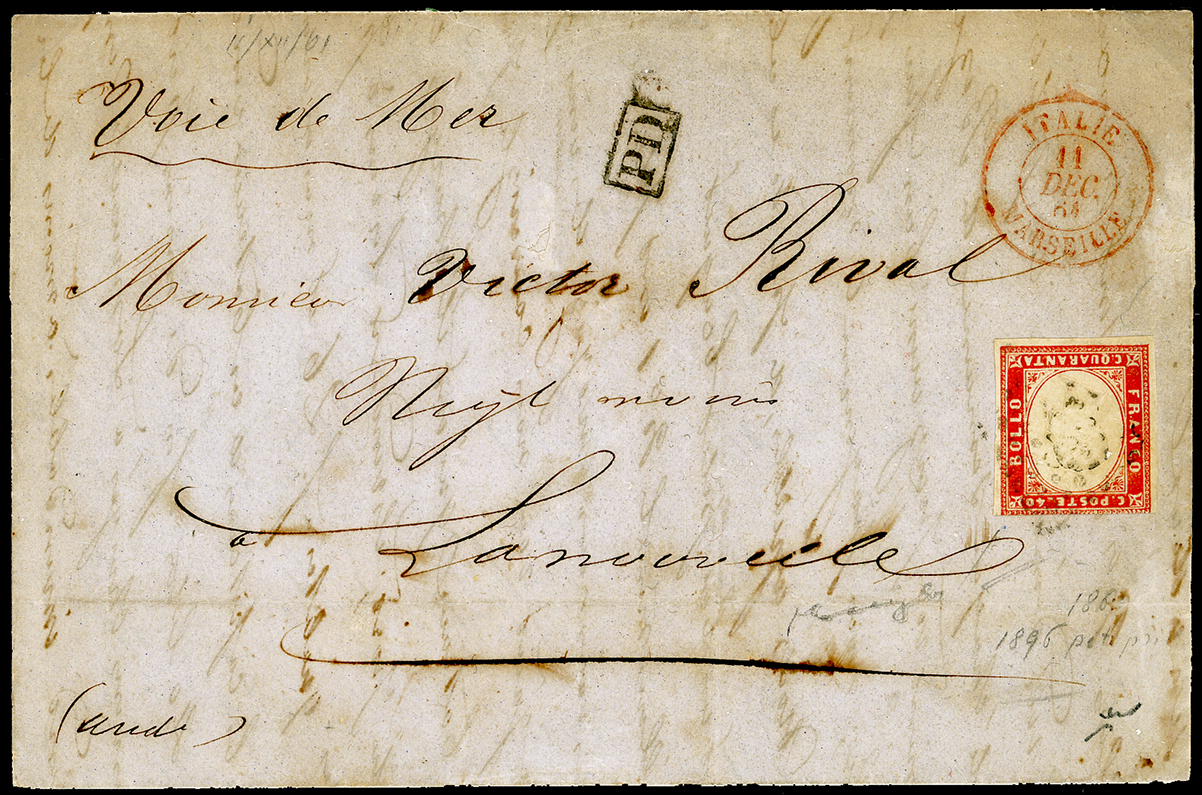 11/XII/61
Voie de Mer
PD
ITALIE
11
DEC.
61
MARSEILLE
Monsieur Victor Rival
Negt
à Lanouvelle
(aude)
C. QUARANTA
BOLLO
FRANCO
C. POSTE. 40
186
1896